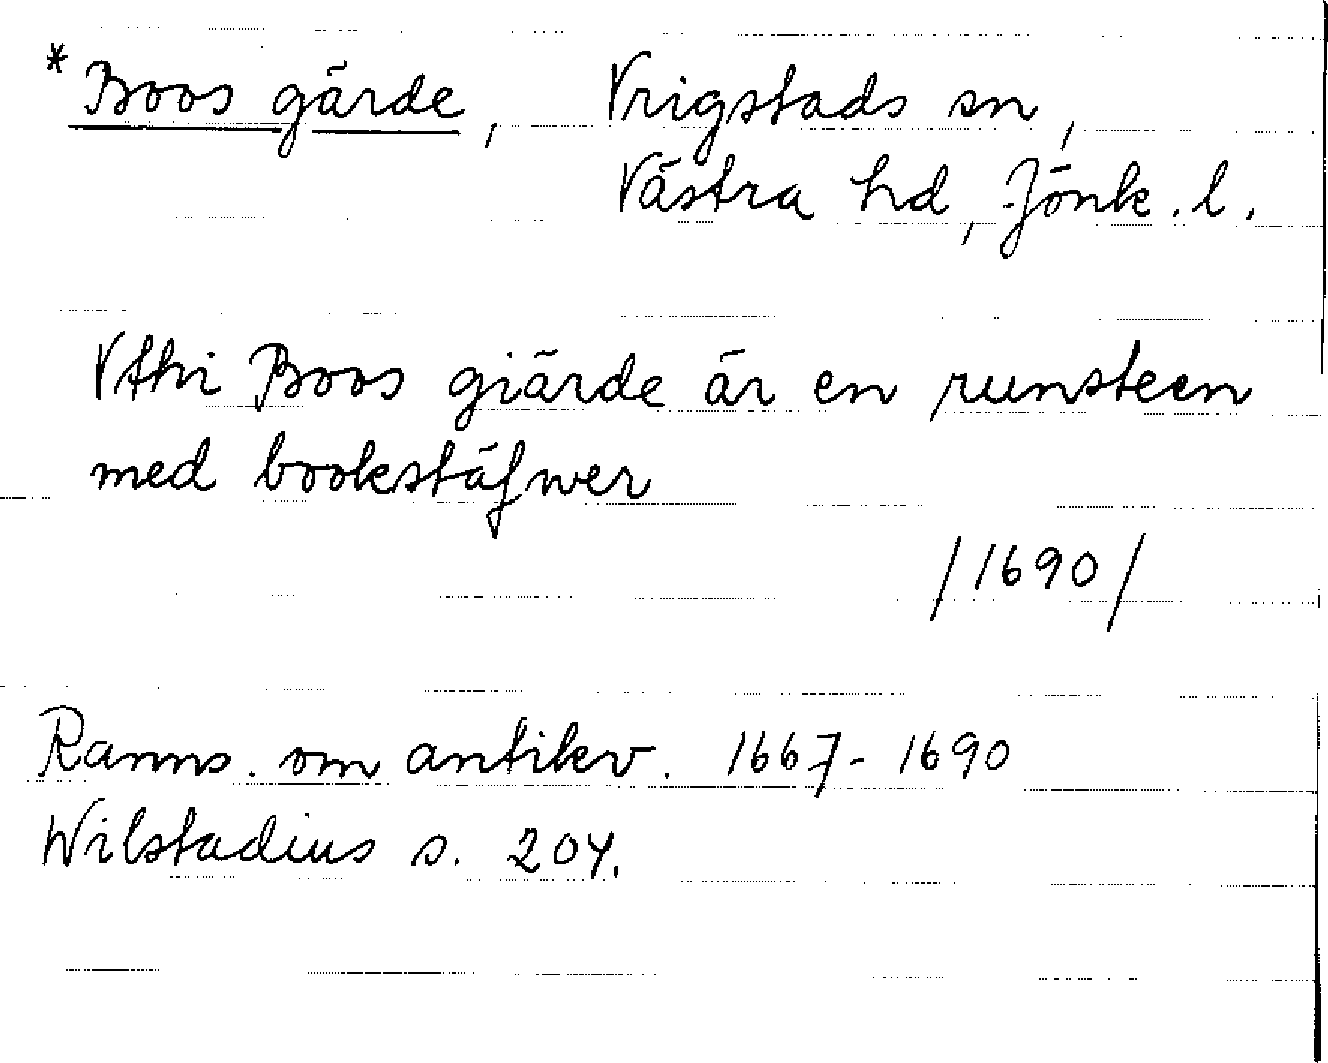 *Boos gärde, Vrigstads sn,
Västra hd, Jönk. l.
Vthi Boos giärde är en runsteen
med bookstäfwer
/1690/
Ranns. om antikv. 1667-1690
Wilstadius s. 204.